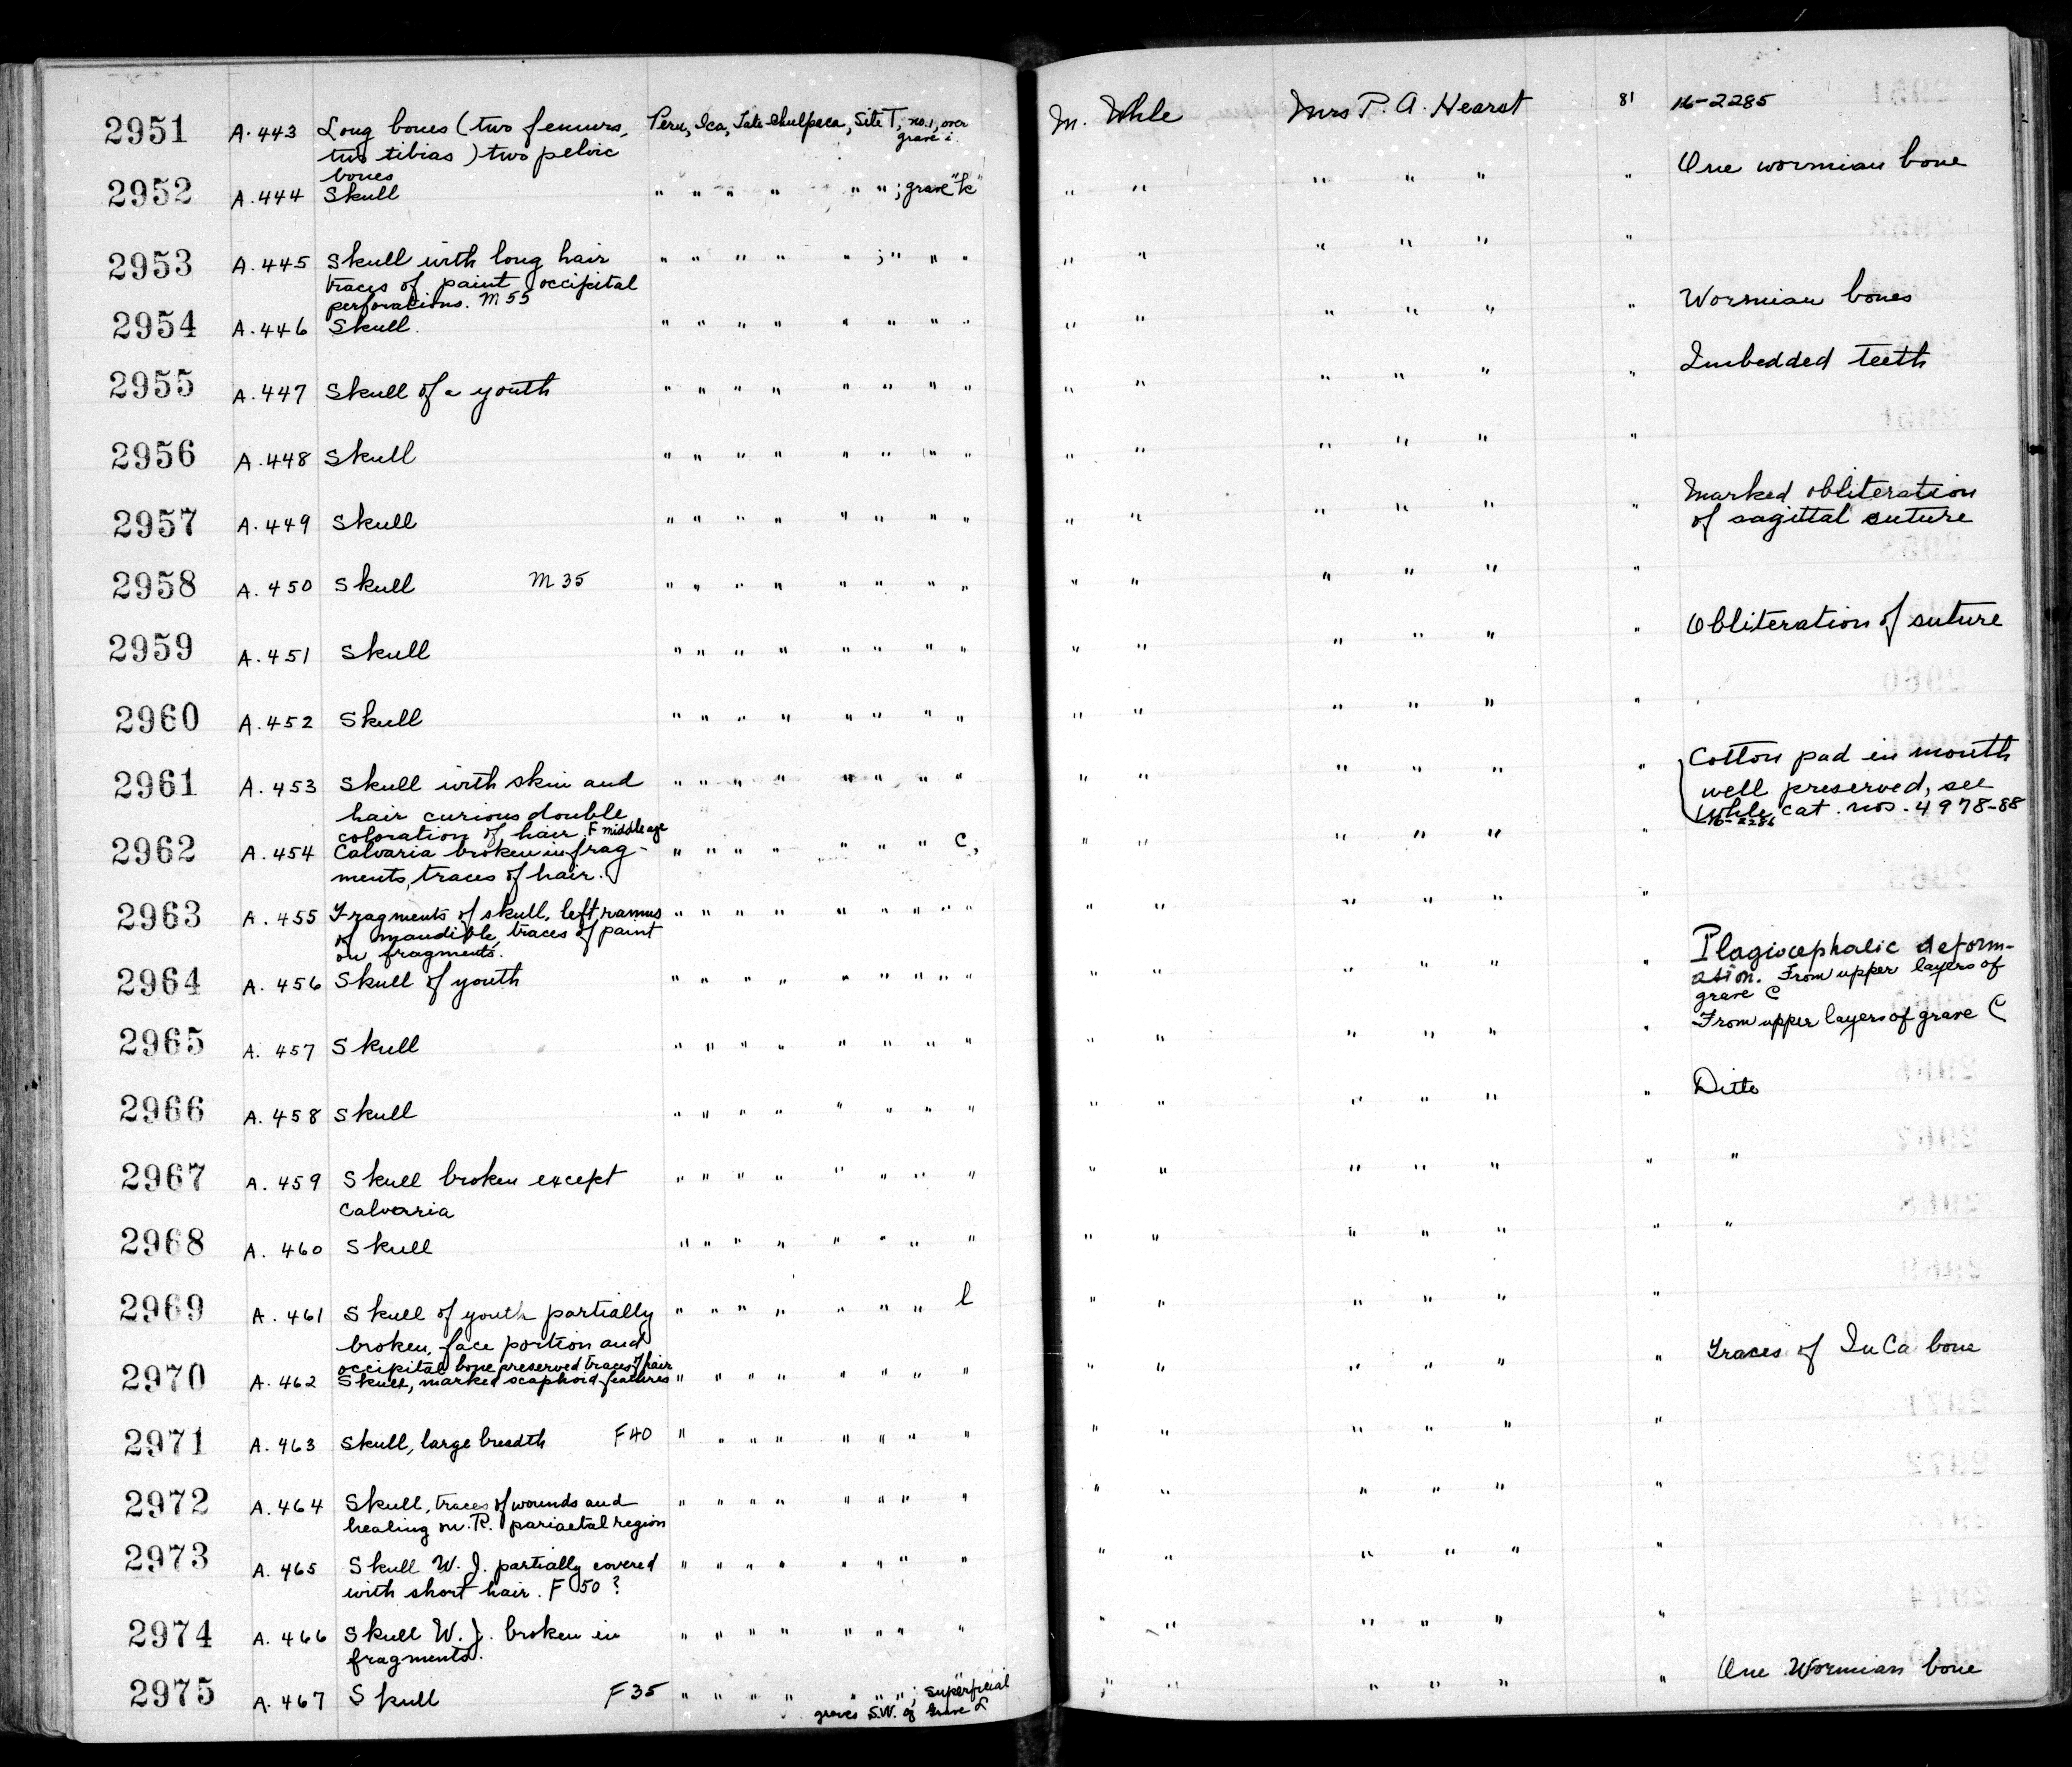 2951 A.443 Long bones (two femurs, Peru, Ica, Tate Chulpaca, Site T, no.1, over M. Uhle Mrs P. A. Hearst 81 16-2285
two tibias) two pelvic grave i.
bones
2952 A.444 Skull " " " " " " ; grave "k" " " " " " " One wormian bone
2953 A.445 Skull with long hair " " " " " ; " " " " " " " " "
traces of paint, occipital
perforations. M 55
2954 A.446 Skull. " " " " " " " " " " " " " " Wormian bones
2955 A.447 Skull of a youth " " " " " " " " " " " " " " Imbedded teeth
2956 A.448 Skull " " " " " " " " " " " " " "
2957 A.449 Skull " " " " " " " " " " " " " " Marked obliteration
of sagittal suture
2958 A.450 Skull M 35 " " " " " " " " " " " " " "
2959 A.451 Skull " " " " " " " " " " " " " " Obliteration of suture
2960 A.452 Skull " " " " " " " " " " " " " "
2961 A.453 Skull with skin and " " " " " " " " " " " " " " Cotton pad in mouth
hair curious double well preserved, see
coloration of hair. F middle age Uhle cat. nos. 4978-88
16-2286
2962 A.454 Calvaria broken in frag- " " " " " " " C, " " " " " "
ments, traces of hair.
2963 A.455 Fragments of skull, left ramus " " " " " " " " " " " " " " "
of mandible, traces of paint
on fragments.
2964 A.456 Skull of youth " " " " " " " " " " " " " " " Plagiocephalic deform-
ation. From upper layers of
grave C
2965 A.457 Skull " " " " " " " " " " " " " " From upper layers of grave C
2966 A.458 Skull " " " " " " " " " " " " " " Ditto
2967 A.459 Skull broken except " " " " " " " " " " " " " " "
Calvaria
2968 A.460 Skull " " " " " " " " " " " " " " "
2969 A.461 Skull of youth partially " " " " " " " l " " " " " "
broken, face portion and
occipital bone preserved traces of hair
2970 A.462 Skull, marked scaphoid features " " " " " " " " " " " " " " Traces of InCa bone
2971 A.463 Skull, large breadth F40 " " " " " " " " " " " " " "
2972 A.464 Skull, traces of wounds and " " " " " " " " " " " " " "
healing on R. pariaetal region
2973 A.465 Skull W. J. partially covered " " " " " " " " " " " " " "
with short hair. F 50 ?
2974 A.466 Skull W. J. broken in " " " " " " " " " " " " " "
fragments.
2975 A.467 Skull F35 " " " " " " " ; superficial " " " " " " One Wormian bone
graves S.W. of Grave